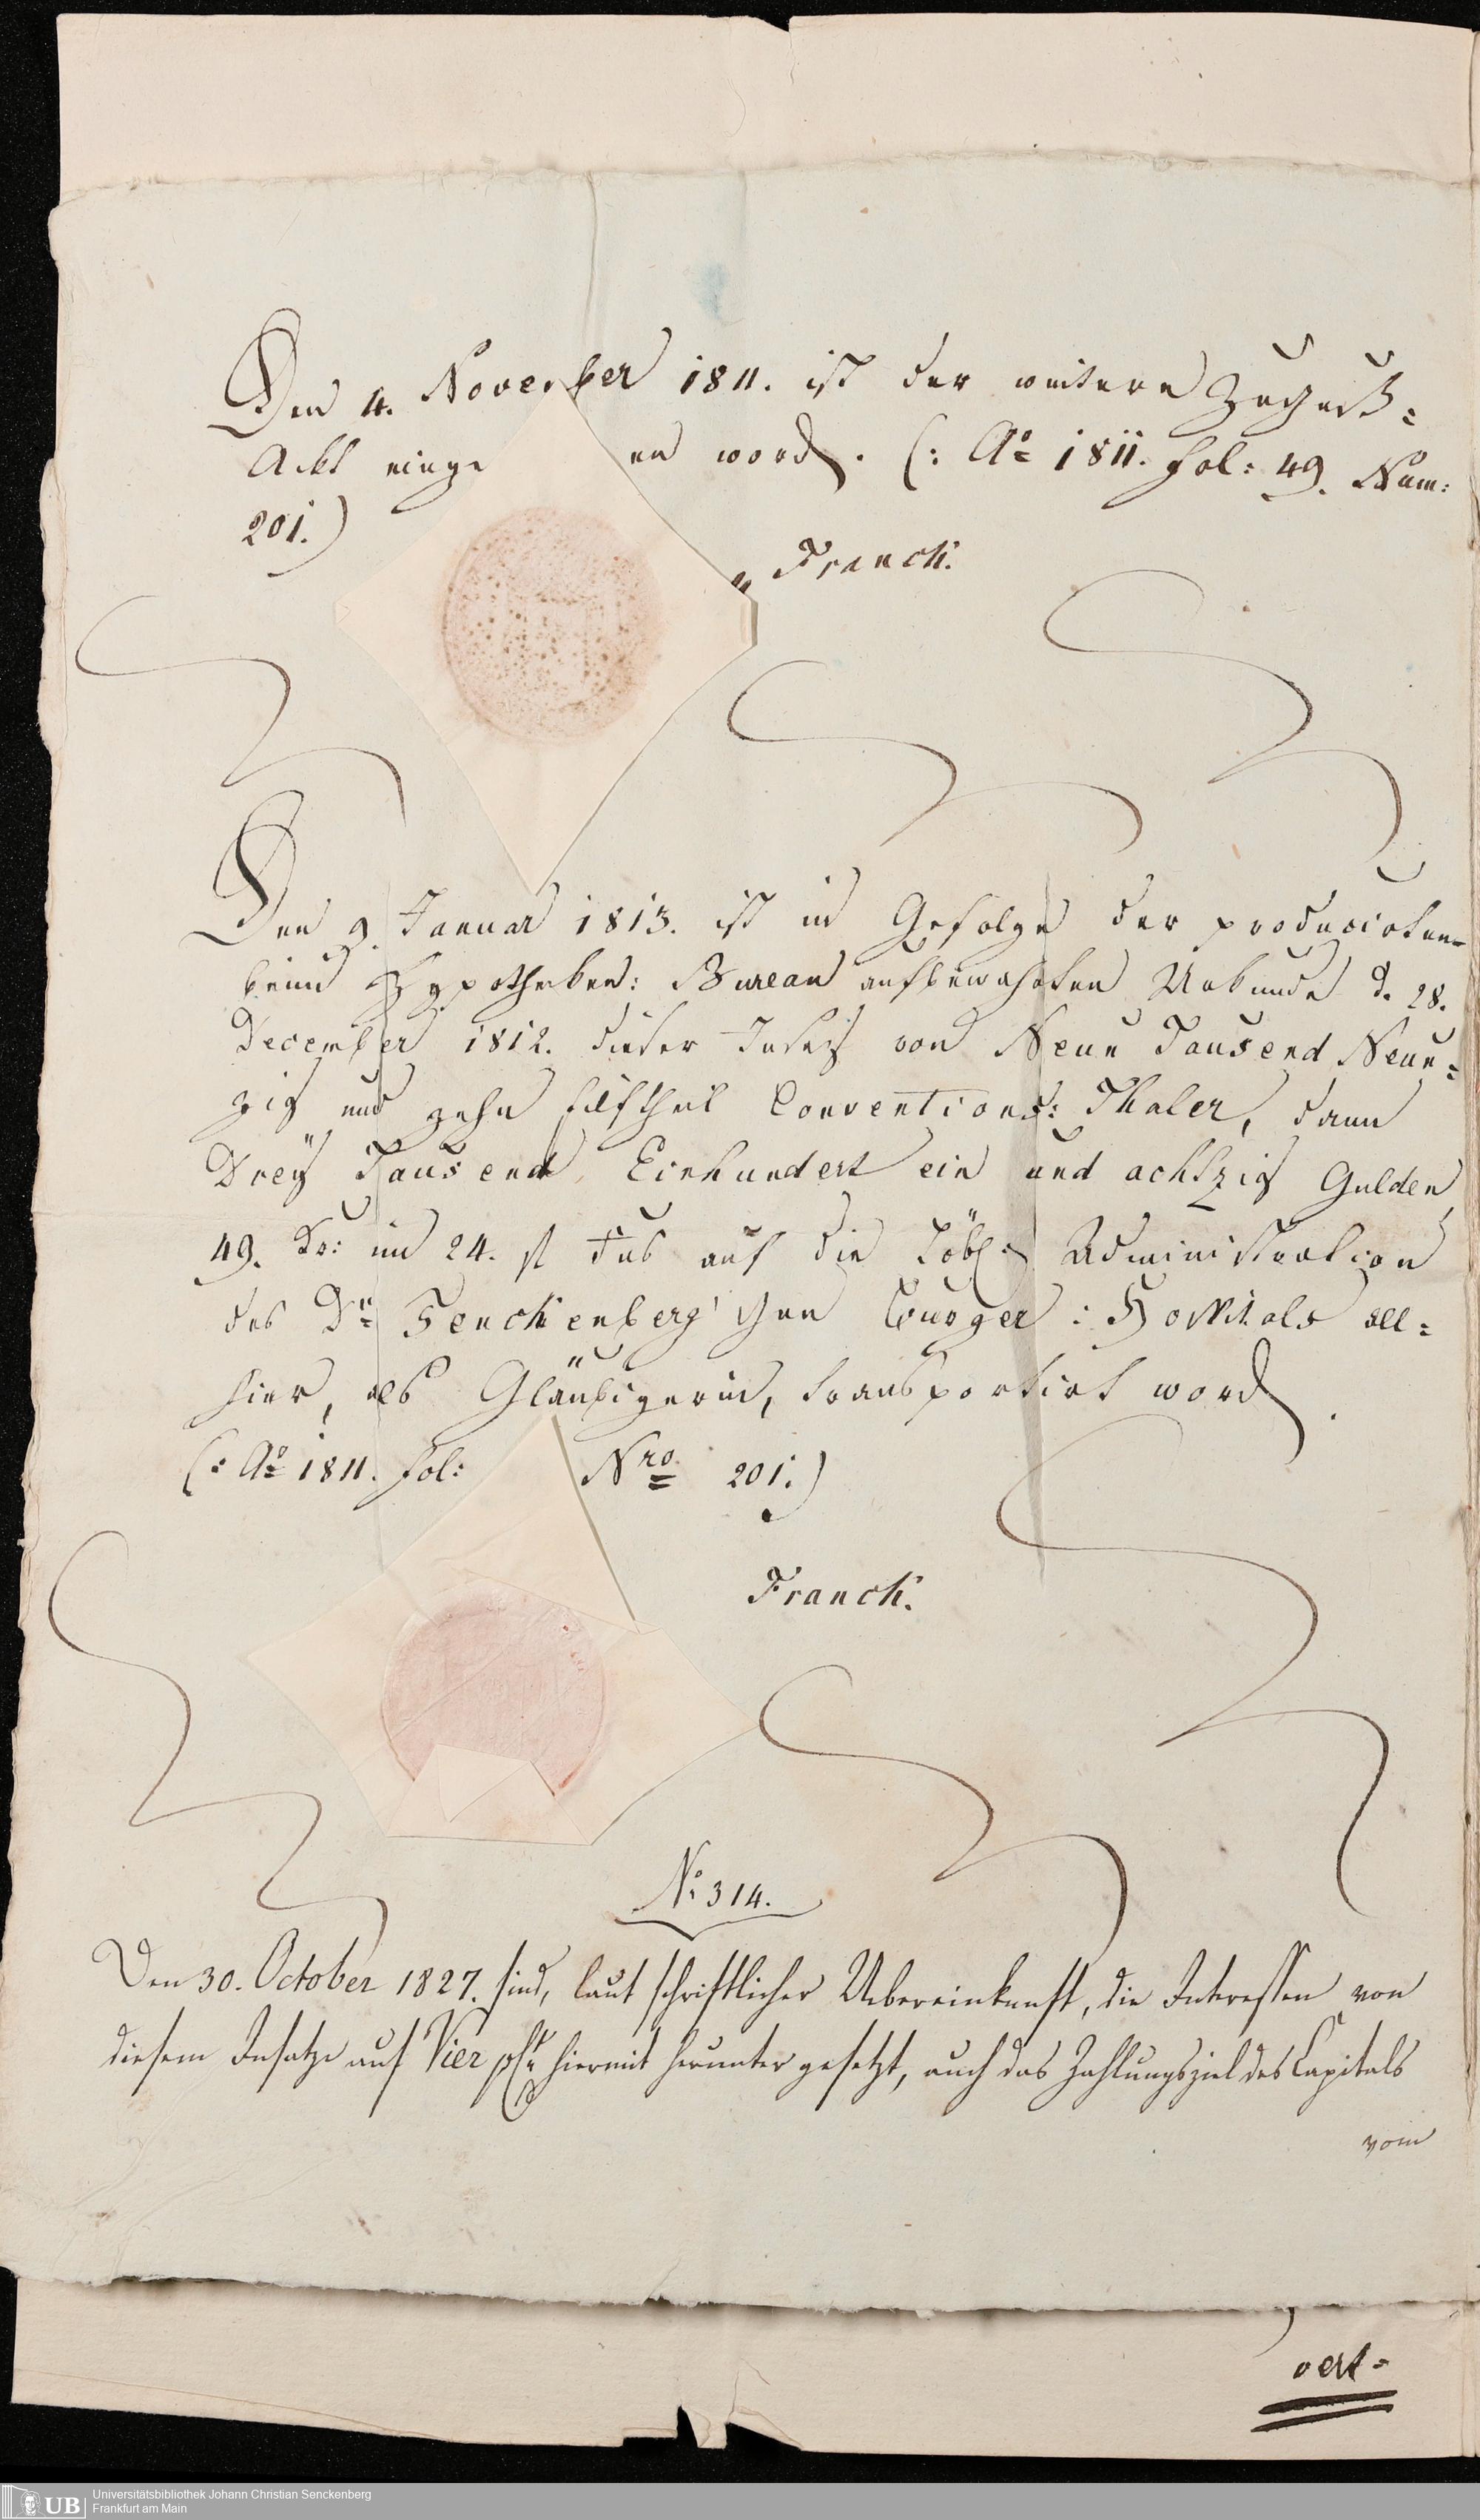 Den 4. November 1811. ist der weitere
Ackt einge en word. (: Aº 1811. fol: 49. Num:
201.)
Franck.
Den 9. Januar 1813. ist in Gefolge der producirten
beim Hypotheken: Bureau aufbewahrten Urkunde d. 28.
December 1812. dieser Insatz von Neun Tausend Neun=
zig und zehn Eilftheil Conventions: Thaler, dann
Dreÿ Tausend Einhundert ein und achtzig Gulden
49. Kr: im 24. fl Fus auf die Löbl: Administration
des Dr Senckenberg'schen Burger: Hospitals all=
hier, als Gläubigerin, transportirt word.
(: Aº 1811. fol: Nro 201.)
Franck.
Nº 314.
Den 30. October 1827. sind, laut schriftlicher Uebereinkunft, die Interessen von
diesem Insatze auf Vier pCt hiermit herunter gesetzt, auch das Zahlungsziel des Capitals
vom
vert=
UB
Universitätsbibliothek Johann Christian Senckenberg
Frankfurt am Main